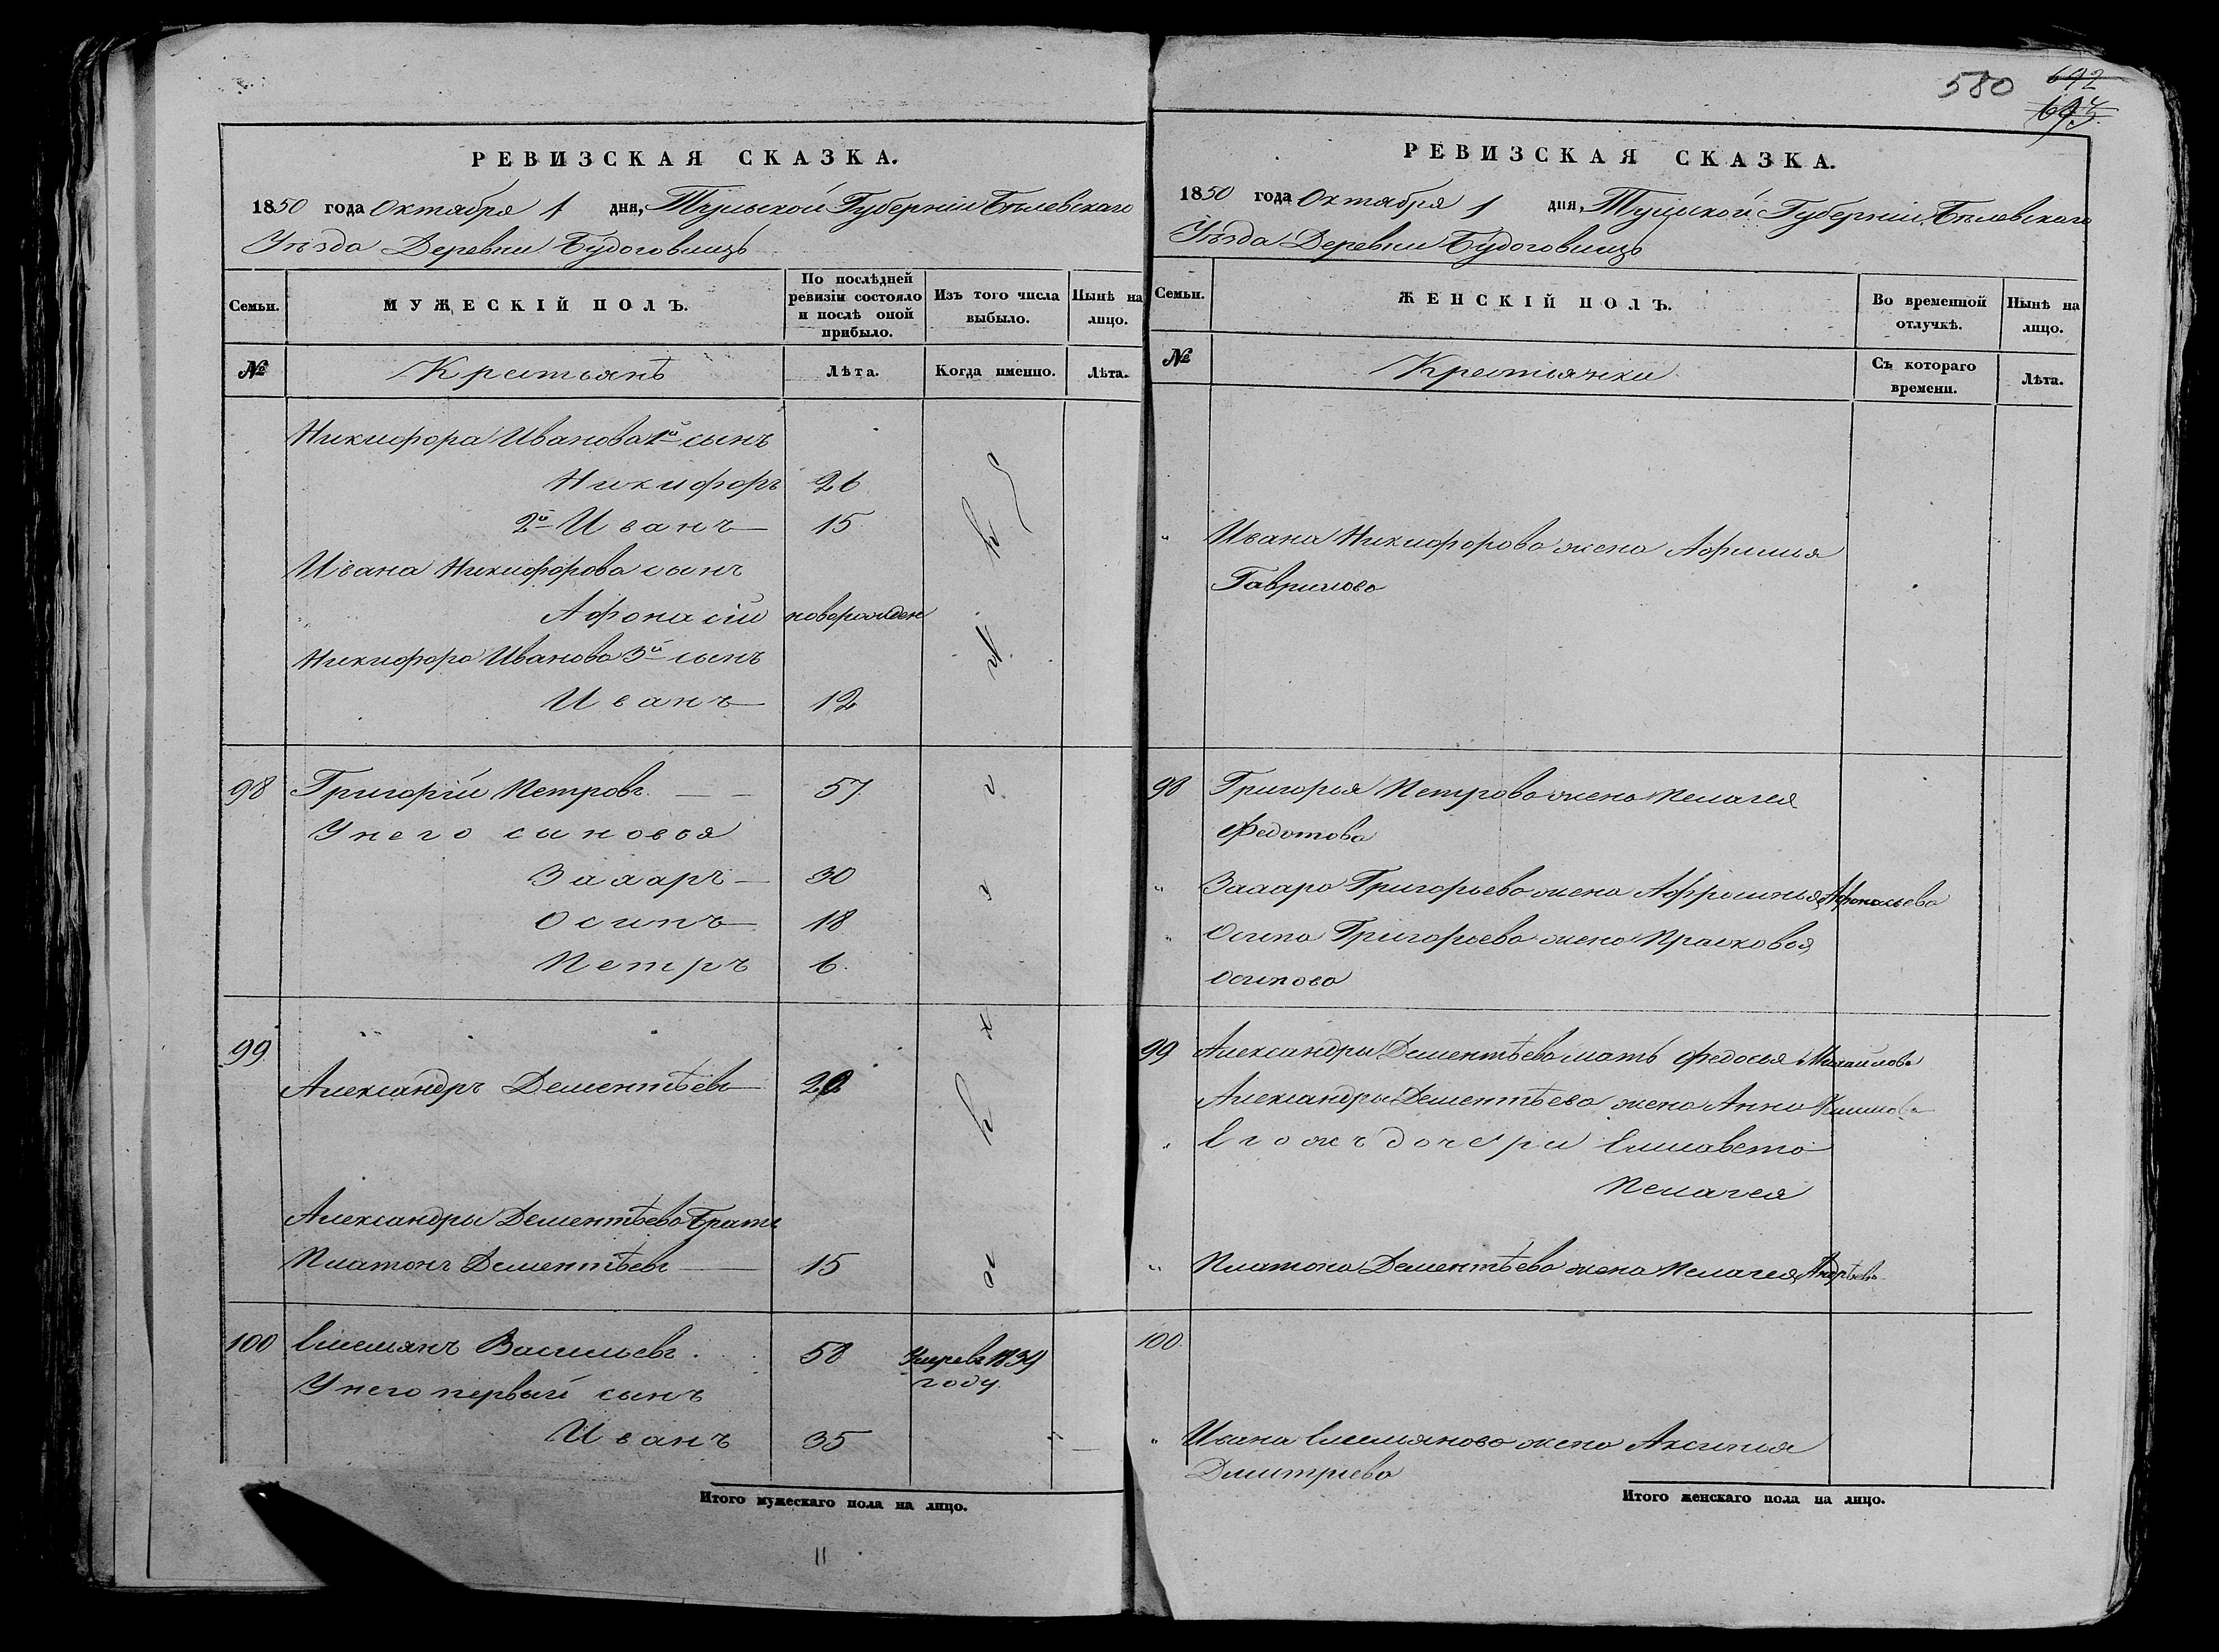 РЕВИЗСКАЯ СКАЗКА.
1850 года Октября 1 дня, Тульской Губернiи Бѣлевскаго
Уѣзда Деревни Будоговищъ
Семьи.
МУЖЕСКIЙ ПОЛЪ.
По послѣдней ревизiи состояло и послѣ оной прибыло.
Изъ того числа выбыло.
Нынѣ на лицо.
№
Крестьянъ
Лѣта.
Когда именно.
Лѣта.
Никифора Иванова 1й сынъ
Никифоръ 26
2й Иванъ 15
Ивана Никифорова сынъ
Афонасiй новорожден
Никифора Иванова 3й сынъ
Иванъ 12
98 Григорiй Петровъ 57
У него сыновья
Захаръ 30
Осипъ 18
Петръ 6.
99
Александръ Дементьевъ
Александры Дементьева братъ
Платонъ Дементьевъ 15
100 Емельянъ Васильевъ 58 Умре въ 1839
году.
У него первый сынъ
Иванъ 35
Итого мужескаго пола на лицо.
11
580 692
РЕВИЗСКАЯ СКАЗКА.
1850 года Октября 1 дня, Тульской Губернiи Бѣлевскаго
Уѣзда Деревни Будоговищъ
Семьи.
ЖЕНСКIЙ ПОЛЪ.
Во временной отлучкѣ.
Нынѣ на лицо.
№
Крестьянки
Съ котораго времени.
Лѣта.
" Ивана Никифорова жена Афимья
Гаврилова
98 Григорья Петрова жена Пелагея
Федотова
" Захара Григорьева жена Афросинья Афонасьева
" Осипа Григорьева жена Прасковья
Осипова
99 Александры Дементьева мать Федосья Михайлова
Александры Дементьева жена Анна
" Егожъ дочери Елисавета
Пелагея
" Платона Дементьева жена Пелагея Андрѣева
100.
" Ивана Емельянова жена Аксинья
Дмитрiева
Итого женскаго пола на лицо.